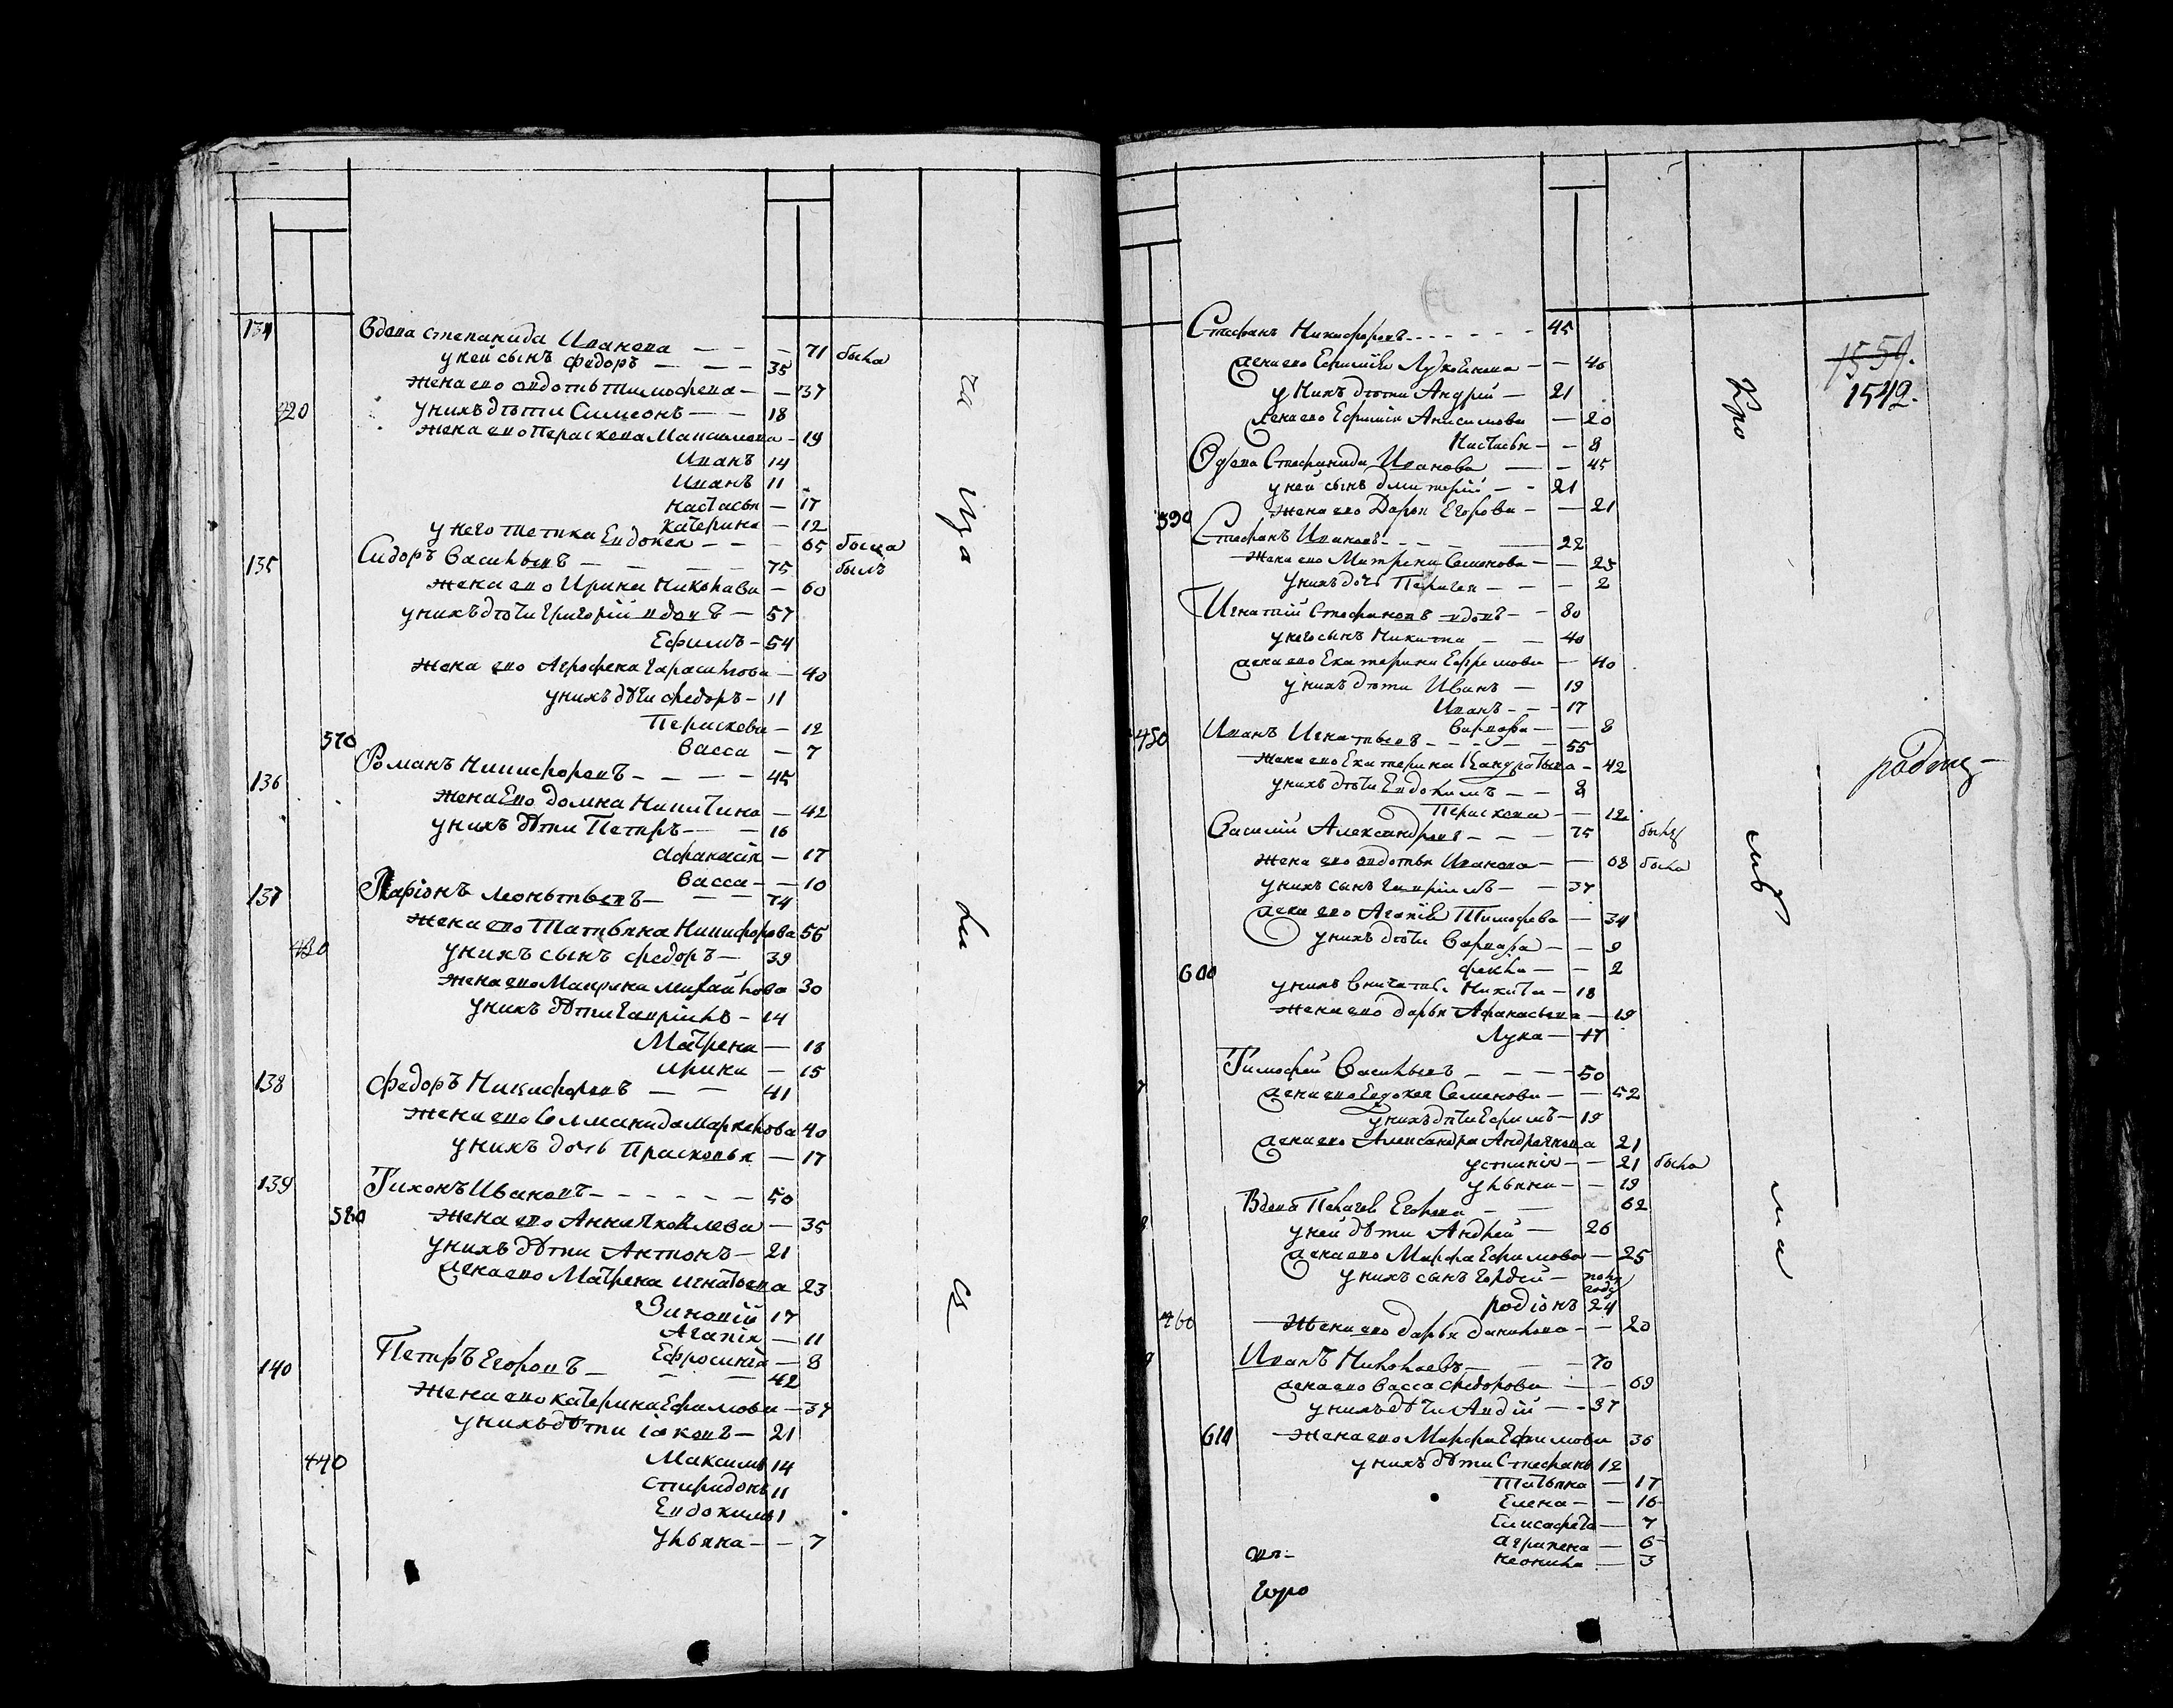 134 Вдова степанида Иванова — — — 71 была
у ней сынъ Федоръ — — — 35
жена ево авдотья тимофева — — 37
420 у нихъ дѣти Симеонъ — — 18
жена ево Пераскева Максимова — 19
Иванъ 14
Иванъ 11
настасья — 17
катерина — 12
у него тетка Евдокея — — — 65 была
135 Сидоръ Васильевъ — — — — 75 былъ
жена ево Ирина Николаева — 60
у нихъ дѣти григорій вдовъ — 57
Ефимъ — 54
жена ево Агрофена гарасимова — 40
у нихъ дѣти федоръ — 11
Пераскева — 12
570 Васса — 7
136 Романъ Никифоровъ — — — — 45
жена Ево домна Никитина — 42
у нихъ дѣти Петръ — — 16
афанасія — 17
Васса — — 10
137 Ларіонъ леонтьевъ — — — 74
жена ево Татьяна Никифорова 55
430 у нихъ сынъ федоръ — 39
жена ево Мавряна михайлова 30
у нихъ дѣти гаврiилъ — 14
Матрена — 18
ирина — 15
138 федоръ Никифоровъ — — 41
жена ево Соломанида маркелова 40
у нихъ дочь Прасковья — 17
139 Тихонъ Ивановъ — — — — — — 50
580 жена ево Анна яковлева — 35
у нихъ дѣти Антонъ — 21
жена ево Матрена игнатьева 23
Зиновій 17
Агапія — 11
Ефросинія — 8
140 Петръ Егоровъ — — — 42
жена ево катерина Ефимова — 37
у нихъ дѣти іаковъ — 21
440 Максимъ 14
спиридонъ 11
Евдокимъ 1
ульяна — — 7
ча
ща
ли
ся
Стефанъ Никифоровъ - - - - - - 45
жена ево Ефимія — — 40
у нихъ дѣти Андрей — 21
жена ево Ефимія Анисимова — 20
Настасья — — 8
Вдова Стефанида Иванова — — 45
у ней сынъ дмитерій — - 21
590 жена ево Дарья Егорова — — 21
Стефанъ Ивановъ - - - — — 22
жена ево Матрена Семенова — — 25
у нихъ дочь — — 2
Игнатій Стефановъ вдовъ — - 80
у него сынъ Никита — — 40
жена ево Екатерина Ефремова — 40
у нихъ дѣти Иванъ — 19
Иванъ - - - 17
Варвара — — 8
450 Иванъ Игнатьевъ - - - — — 55
жена ево Екатерина Кандратьева - 42
у нихъ дѣти Евдокимъ — — 2
Пераскева — — 12
Василій Александровъ - — — 75 былъ
жена ево авдотья Иванова — — 68 была
у нихъ сынъ гаврiилъ — — 37
жена ево Агапія Тимофева — 34
у нихъ дѣти Варвара — — 9
600 фекла — — 2
у нихъ Никита — 18
жена ево дарья Афанасьева — 19
Лука — 17
Тимофей Васильевъ — — — — 50
жена ево Евдокея Семенова — — 52
у нихъ дѣти Ефимъ — 19
жена ево Александра Андреянова 21
устинія — — 21 была
ульяна — — 19
Вдова Пелагея Егорова — — 62
у ней дѣти Андрей — 26
жена ево Марфа Ефимова — 25
у нихъ сынъ гордей — полъ года
родіонъ 24
460 жена ево дарья данилова — — 20
Иванъ Николаевъ — — — 70
жена ево Васса федорова — — 69
у нихъ дѣти Авдій — - 37
610 жена ево Марфа Ефимова 36
у нихъ дѣти Стефанъ 12
татьяна — 17
Елена — — 16
Елисафета — 7
аграпена — 6
неонила — 3
1559.
1542.
Кро
мѣ
на